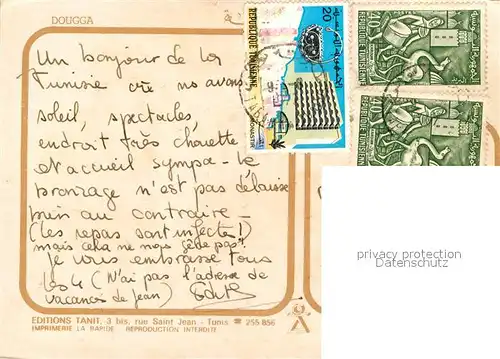 DOUGGA
Un bonjour de la
Tunisie où no avons
soleil, spectacles,
endroit très chouette
et accueil sympa - le
bronzage n'est pas délaissé
bien au contraire -
(les repas sont infects!)
mais cela ne nous gêne pas!
Je vous embrasse tous
les 4 (N'ai pas l'adresse de
vacances de Jean)
EDITIONS TANIT, 3 bis, rue Saint Jean - Tunis ☎ 255-856
IMPRIMERIE LA RAPIDE REPRODUCTION INTERDITE
REPUBLIQUE TUNISIENNE
20
MONASTIR
40
REPUBLIQUE TUNISIENNE
REPUBLIQUE TUNISIENNE
privacy protection
Datenschutz